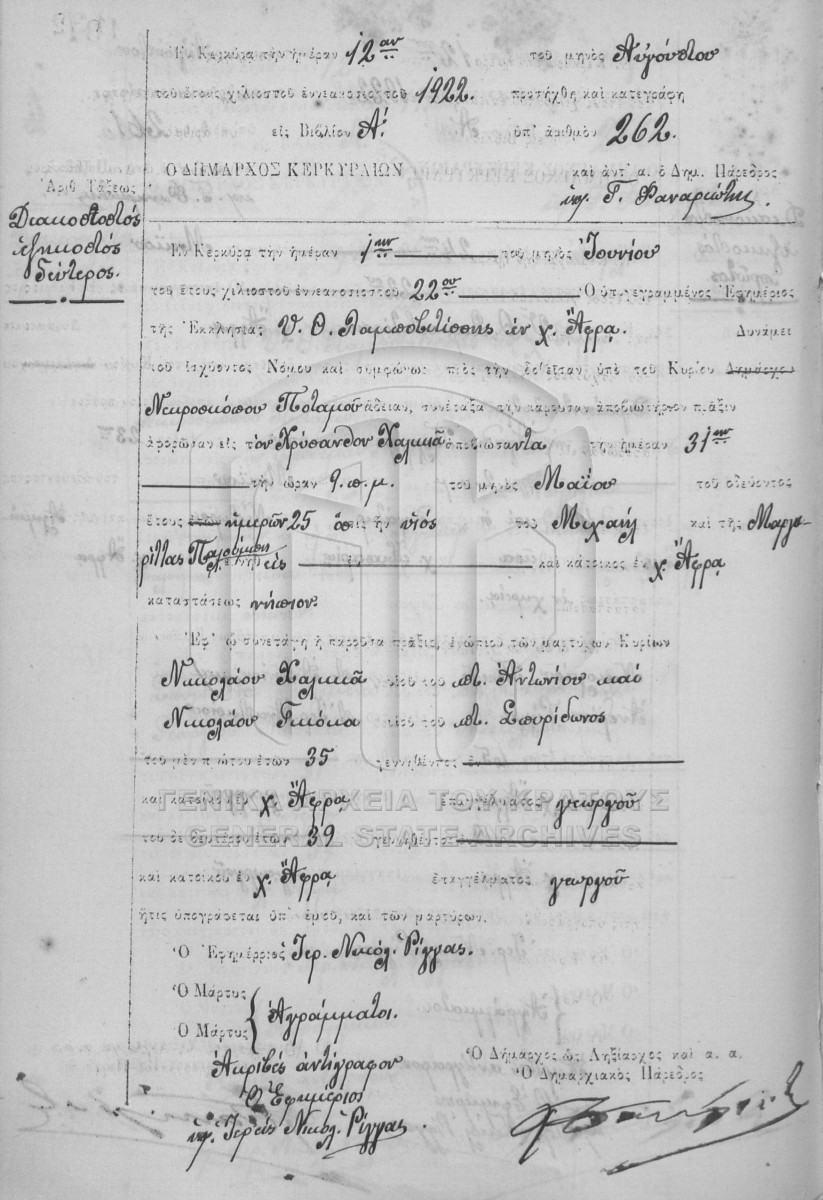 Ἐν Κερκύρᾳ τὴν ἡμέραν 12αν τοῦ μηνὸς Αὐγούστου
τοῦ ἔτους χιλιοστοῦ ἐννεακοσιοστοῦ 1922. προσήχθη καὶ κατεγράφη
εἰς Βιβλίον Α΄. ὑπ' ἀριθμὸν 262.
Ο ΔΗΜΑΡΧΟΣ ΚΕΡΚΥΡΑΙΩΝ καὶ ἀντ' α. ὁ Δημ. Πάρεδρος
ὑπ. Γ. Φαναριώτης
Ἀριθ. Τάξεως
Διακοσιοστός
ἑξηκοστός
δεύτερος.
Ἐν Κερκύρᾳ τὴν ἡμέραν 1ην τοῦ μηνὸς Ἰουνίου
τοῦ ἔτους χιλιοστοῦ ἐννεακοσιοστοῦ 22ου Ὁ ὑπογεγραμμένος Ἐφημέριος
τῆς Ἐκκλησίας Υ. Θ. Λαμποβιτίσσης ἐν χ. Ἄφρᾳ. Δυνάμει
τοῦ ἰσχύοντος Νόμου καὶ συμφώνως πρὸς τὴν δοθεῖσαν ὑπὸ τοῦ Κυρίου Δημάρχου
Νεκροσκόπου Ποταμοῦ ἄδειαν, συνέταξα τὴν παροῦσαν ἀποβιωτήριον πρᾶξιν
ἀφορῶσαν εἰς τὸν Χρύσανθον Χαλικιᾶ ἀποβιώσαντα τὴν ἡμέραν 31ην
τὴν ὥραν 9. π.μ. τοῦ μηνὸς Μαΐου τοῦ ὁδεύοντος
ἔτους ἐτῶν ἡμερῶν 25 ὅστις ἦν υἱός τοῦ Μιχαήλ καὶ τῆς Μαργα-
ρίτας γεννηθεὶς ἐν καὶ κάτοικος ἐν χ. Ἄφρᾳ
καταστάσεως νήπιον.
Ἐφ' ᾧ συνετάγη ἡ παροῦσα πρᾶξις, ἐνώπιον τῶν μαρτύρων Κυρίων
Νικολάου Χαλικιᾶ υἱοῦ τοῦ ποτ. Ἀντωνίου καὶ
Νικολάου Γκόκα υἱοῦ τοῦ ποτ. Σπυρίδωνος
τοῦ μὲν πρώτου ἐτῶν 35 γεννηθέντος ἐν
καὶ κατοίκου ἐν χ. Ἄφρᾳ ἐπαγγέλματος γεωργοῦ
ΓΕΝΙΚΑ ΑΡΧΕΙΑ ΤΟΥ ΚΡΑΤΟΥΣ
GENERAL STATE ARCHIVES
τοῦ δὲ δευτέρου ἐτῶν 39 γεννηθέντος
καὶ κατοίκου ἐν χ. Ἄφρᾳ ἐπαγγέλματος γεωργοῦ
ἥτις ὑπογράφεται ὑπ' ἐμοῦ, καὶ τῶν μαρτύρων.
Ὁ Ἐφημέριος Ἱερ. Νικόλ. Ρίγγας.
Ὁ Μάρτυς
Ὁ Μάρτυς
Ἀγράμματοι.
Ἀκριβές ἀντίγραφον
Ὁ Ἐφημέριος
ὑπ. Ἱερεύς Νικόλ. Ρίγγας.
Ὁ Δήμαρχος ὡς Ληξίαρχος καὶ α. α.
Ὁ Δημαρχιακὸς Πάρεδρος